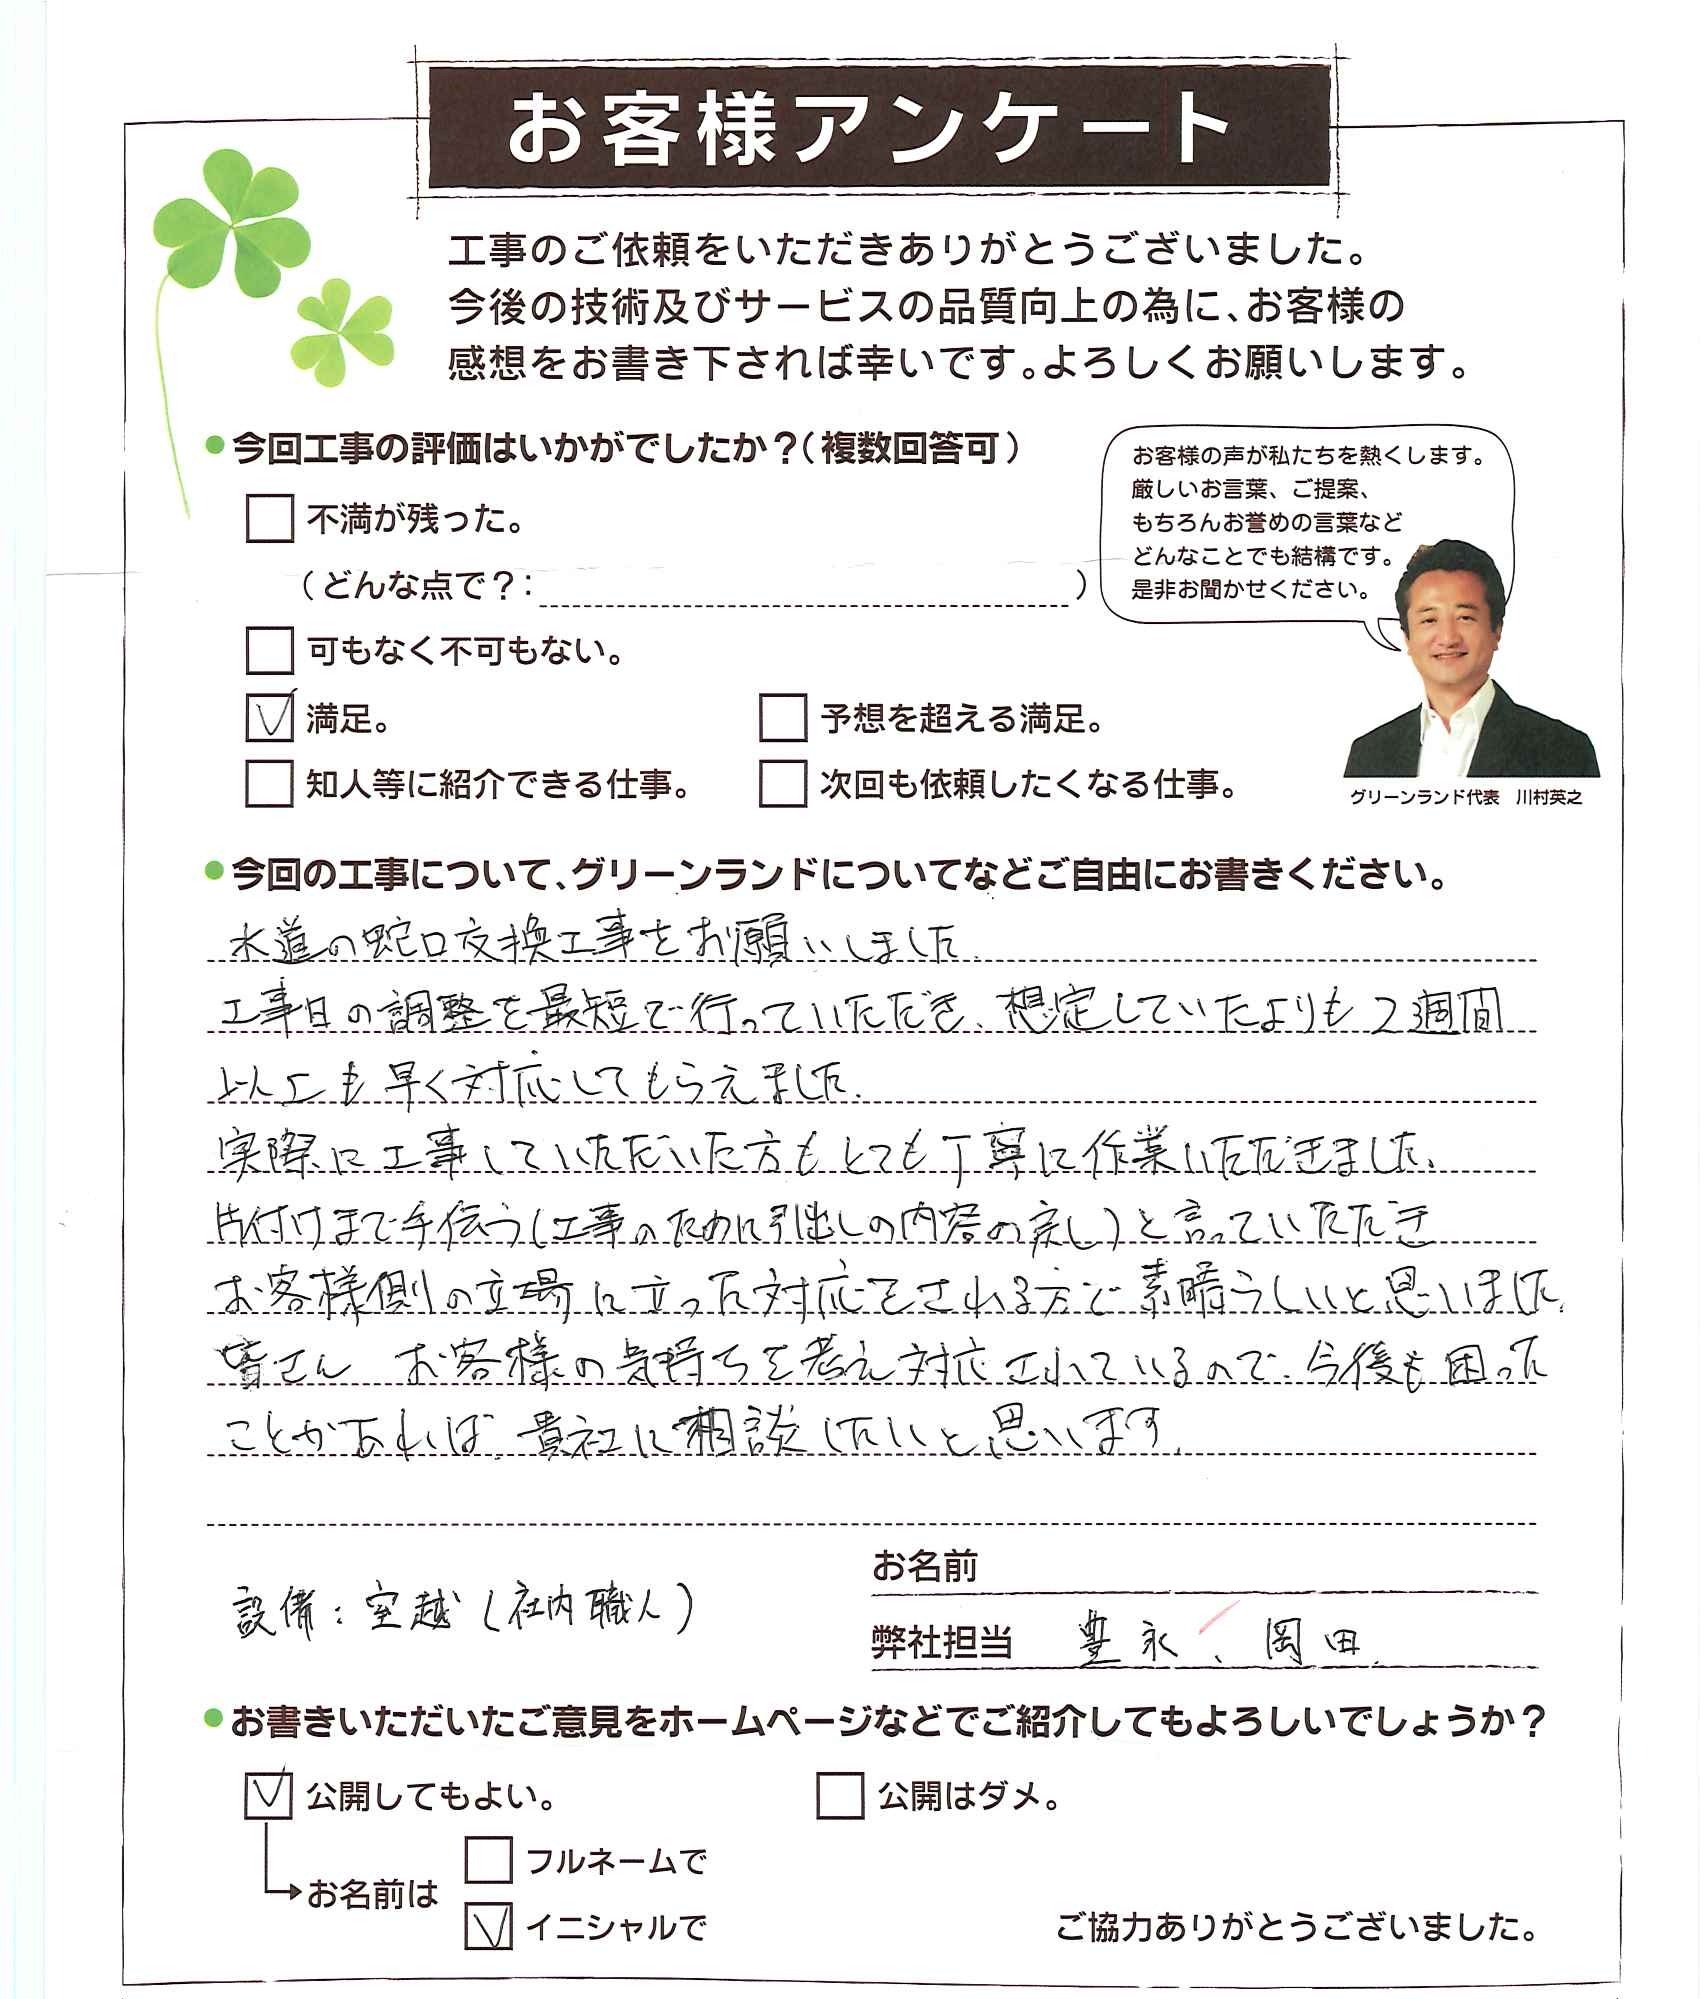 お客様アンケート
工事のご依頼をいただきありがとうございました。
今後の技術及びサービスの品質向上の為に、お客様の
感想をお書き下されば幸いです。よろしくお願いします。
今回工事の評価はいかがでしたか？（複数回答可）
不満が残った。
（どんな点で？：）
可もなく不可もない。
満足。
予想を超える満足。
知人等に紹介できる仕事。
次回も依頼したくなる仕事。
お客様の声が私たちを熱くします。
厳しいお言葉、ご提案、
もちろんお誉めの言葉など
どんなことでも結構です。
是非お聞かせください。
グリーンランド代表　川村英之
今回の工事について、グリーンランドについてなどご自由にお書きください。
水道の蛇口交換工事をお願いしました
工事日の調整を最短で行っていただき、想定していたよりも2週間
以上も早く対応してもらえました。
実際に工事していただいた方もとても丁寧に作業いただきました。
片付けまで手伝う(工事のために引出しの内容の戻し)と言っていただき
お客様側の立場に立った対応をされる方で素晴らしいと思いました。
皆さん お客様の気持ちを考え対応されているので、今後も困った
ことがあれば、貴社に相談したいと思います。
お名前
設備：室越(社内職人)
弊社担当　豊永、岡田
お書きいただいたご意見をホームページなどでご紹介してもよろしいでしょうか？
公開してもよい。
公開はダメ。
お名前は
フルネームで
イニシャルで
ご協力ありがとうございました。